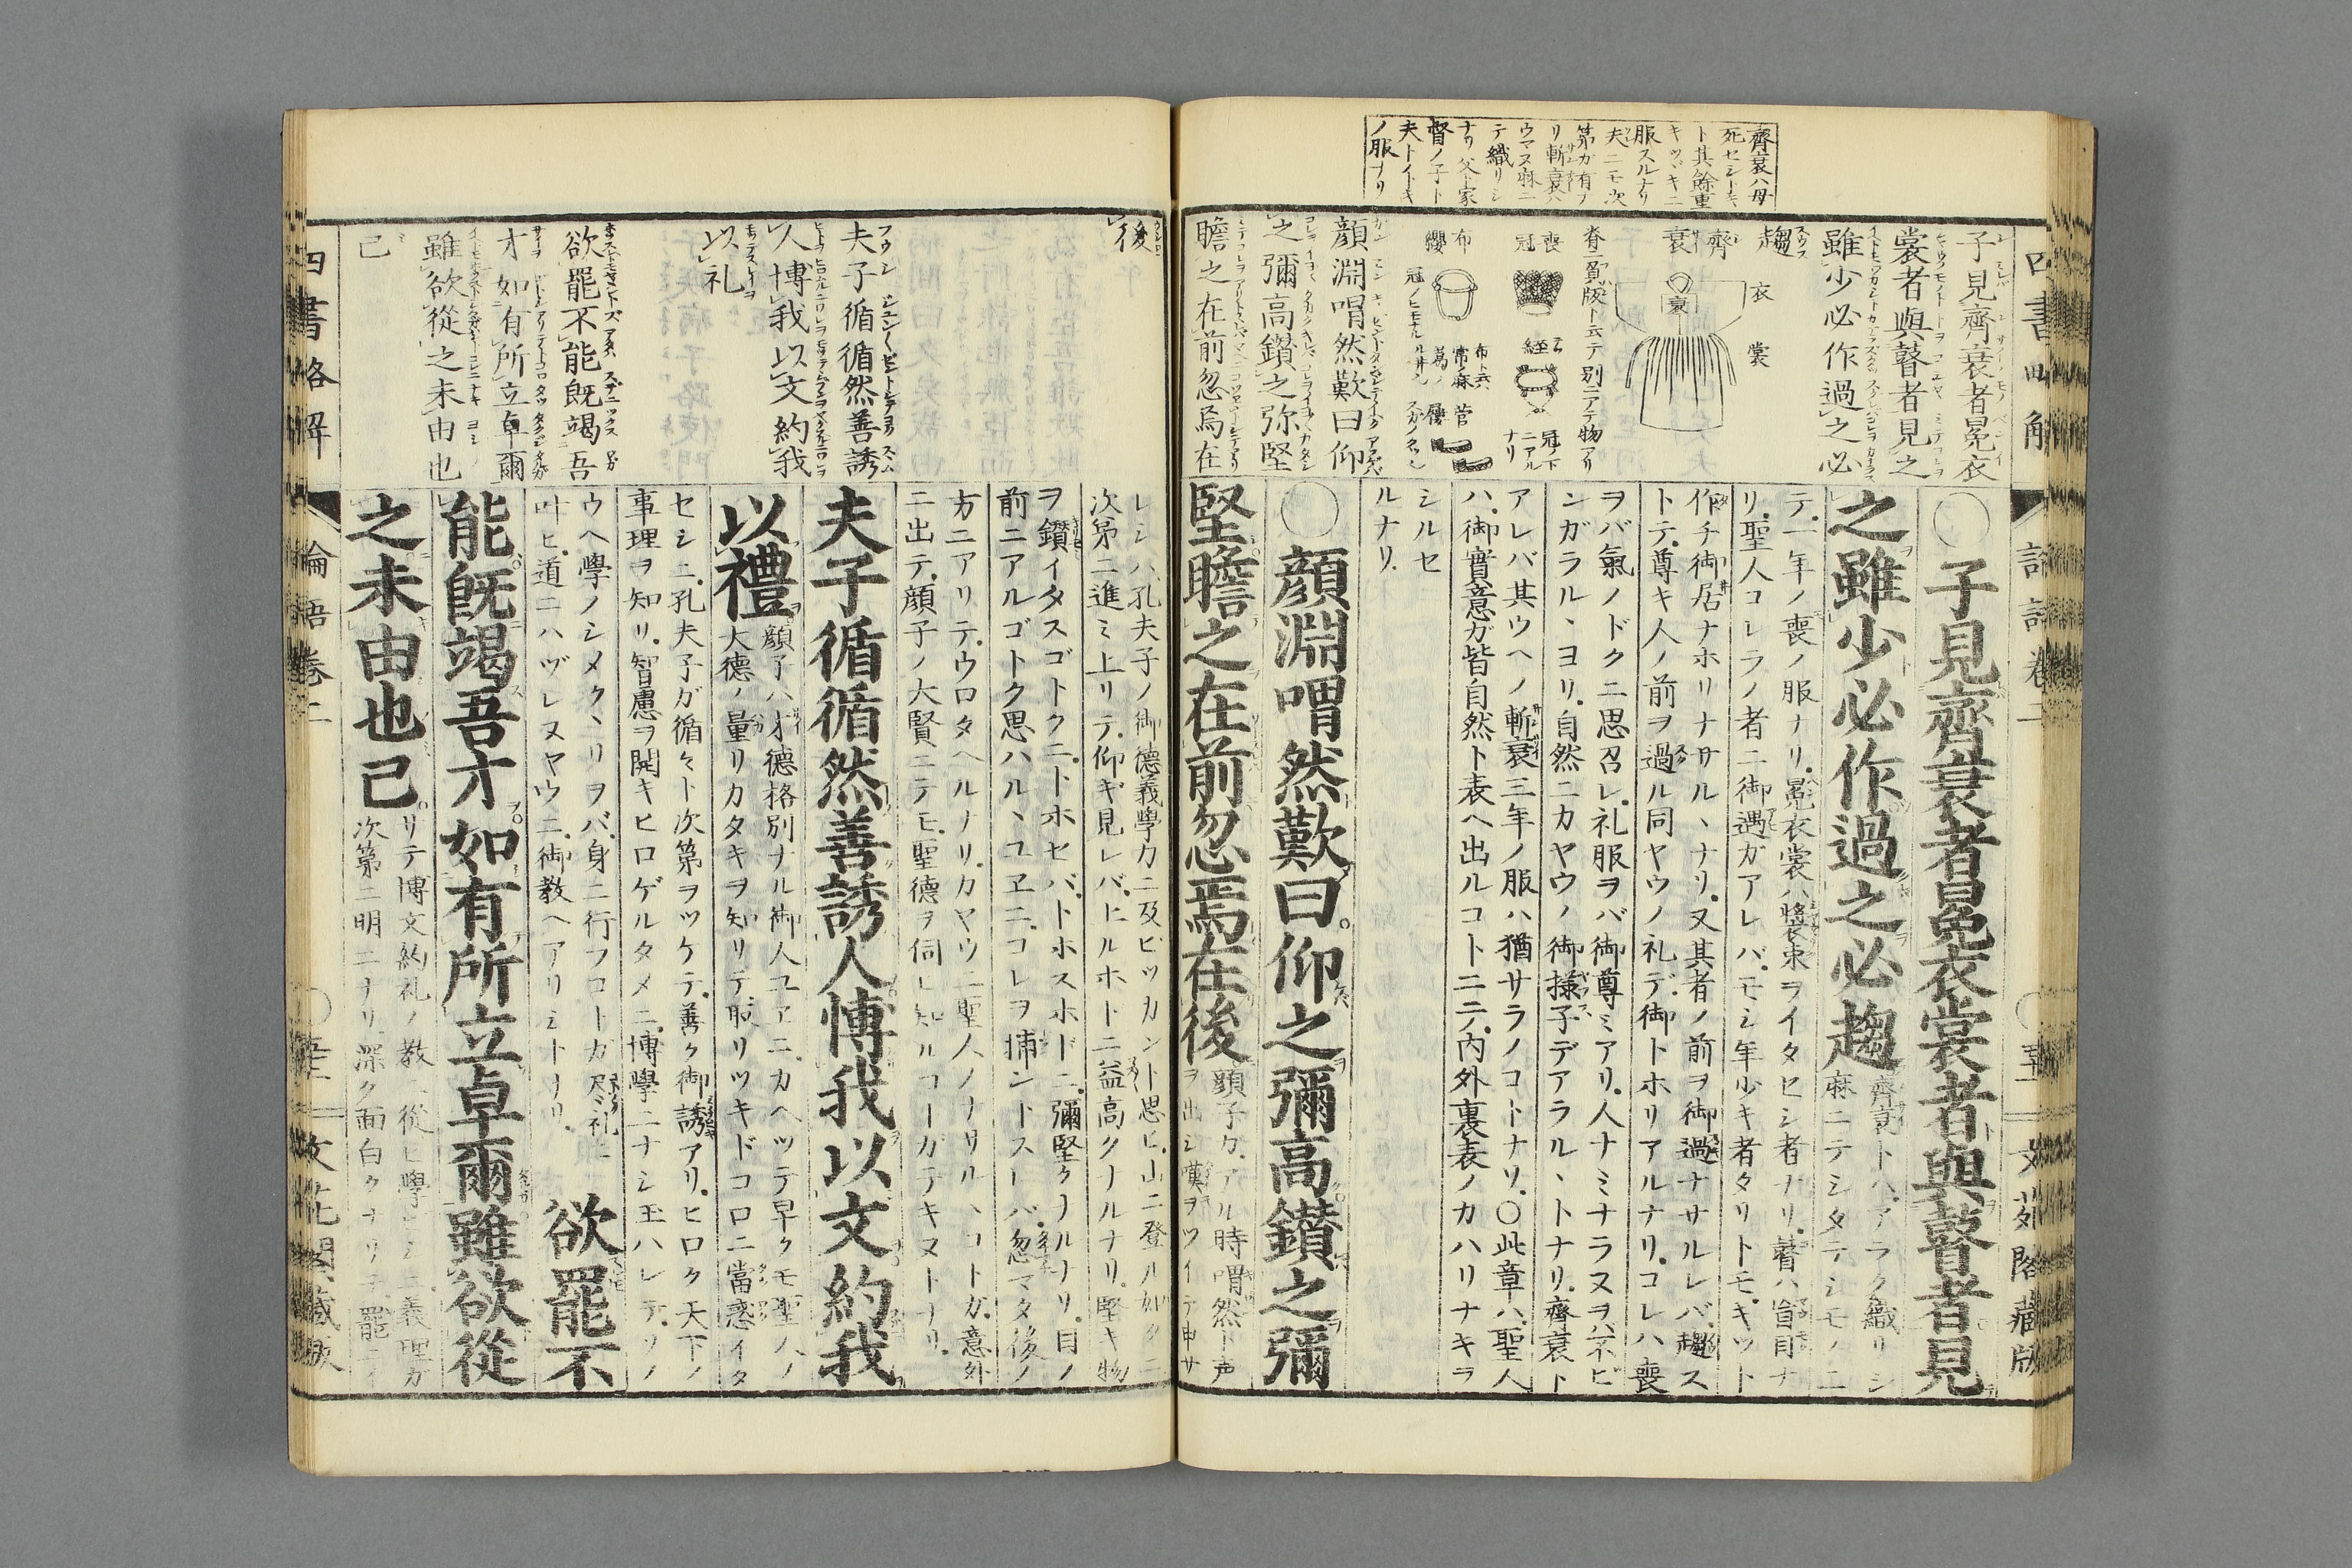 齊衰ハ母
死セシトキ
ト其餘重
キツヾキニ
服スルナリ
夫ニモ次
第ガ有ナ
リ斬衰ハ
ウマズ麻ニ
テ織リシ
ナリ父ト家
督ノ子ト
夫トノトキ
ノ服ナリ
子見齊衰者冕衣
裳者與瞽者見之
雖少必作過之必
趨
齊衰
衰
衣
裳
脊ニ負版ト云テ別ニアテ物アリ
喪冠
絰
冠ノ下
ニアル
ナリ
布纓
冠ノヒモナル
布ト云
常ノ麻
葛ノ
菅屨
顏淵喟然歎曰仰
之彌高鑽之弥堅
瞻之在前忽焉在
○子見齊衰者冕衣裳者與瞽者見
之雖少必作過之必趨
齊衰トハアラク織リシ
麻ニテシタテシモノニ
テ一年ノ喪ノ服ナリ冕衣裳ハ裝束ヲイタセシ者ナリ瞽ハ盲目ナ
リ聖人コレラノ者ニ御遇ガアレバモシ年少キ者タリトモキット
作チ御居ナホリナサルヽナリ又其者ノ前ヲ御過ナサルレバ趨ス
トテ尊キ人ノ前ヲ過ル同ヤウノ礼デ御トホリアルナリコレハ喪
ヲバ氣ノドクニ思召レ礼服ヲバ御尊ミアリ人ナミナラヌヲバ不ビ
ンガラルヽヨリ自然ニカヤウノ御様子デアラルヽトナリ齊衰ト
アレバ其ウヘノ斬衰三年ノ服ハ猶サラノコトナリ○此章ハ聖人
ハ御實意ガ皆自然ト表ヘ出ルコトニテ內外裏表ノカハリナキヲ
シルセ
ルナリ
○顏淵喟然歎曰仰之彌高鑽之彌
堅瞻之在前忽焉在後
顏子ガアル時喟然ト声
ヲ出シ嘆ヲツイテ申サ
四書略解
論語卷二
文花閣藏版
後
夫子循循然善誘
人博我以文約我
以礼
欲罷不能既竭吾
才如有所立卓爾
雖欲從之末由也
已
レシハ孔夫子ノ御德義學力ニ及ビツカント思ヒ山ニ登ル如クニ
次第ニ進ミ上リテ仰ギ見レバヒルホトニ益高クナルナリ堅キ物
ヲ鑽イタスゴトクニトホセバトホスホドニ彌堅クナルナリ目ノ
前ニアルゴトク思ハルヽユヱニコレヲ捕ントスレバ忽マタ後ノ
方ニアリテウロタヘルナリカヤウニ聖人ノナサルヽコトガ意外
ニ出テ顏子ノ大賢ニテモ聖德ヲ伺ヒ知ルコトガデキヌトナリ
夫子循循然善誘人博我以文約我
以禮
顏子ハ才德格別ナル御人ユヱニカヘツテ早クモ聖人ノ
大德ノ量リカタキヲ知リテ取リツキドコロニ當惑イタ
セシニ孔夫子ガ循々ト次第ヲツケテ善ク御誘アリヒロク天下ノ
事理ヲ知リ智慮ヲ開キヒロゲルタメニ博學ニナシ玉ハレテソノ
ウヘ學ノシメクヽリヲバ身ニ行フコトガ尽ク礼ニ
叶ヒ道ニハヅレヌヤウニ御教ヘアリシトナリ
欲罷不
能既竭吾才如有所立卓爾雖欲從
之末由也已
リテ博文約礼ノ教ニ從ヒ學シニ義理ガ
次第ニ明ニナリ深ク面白クナリテ罷ニイ
四書略解
論語卷二
文花閣藏版